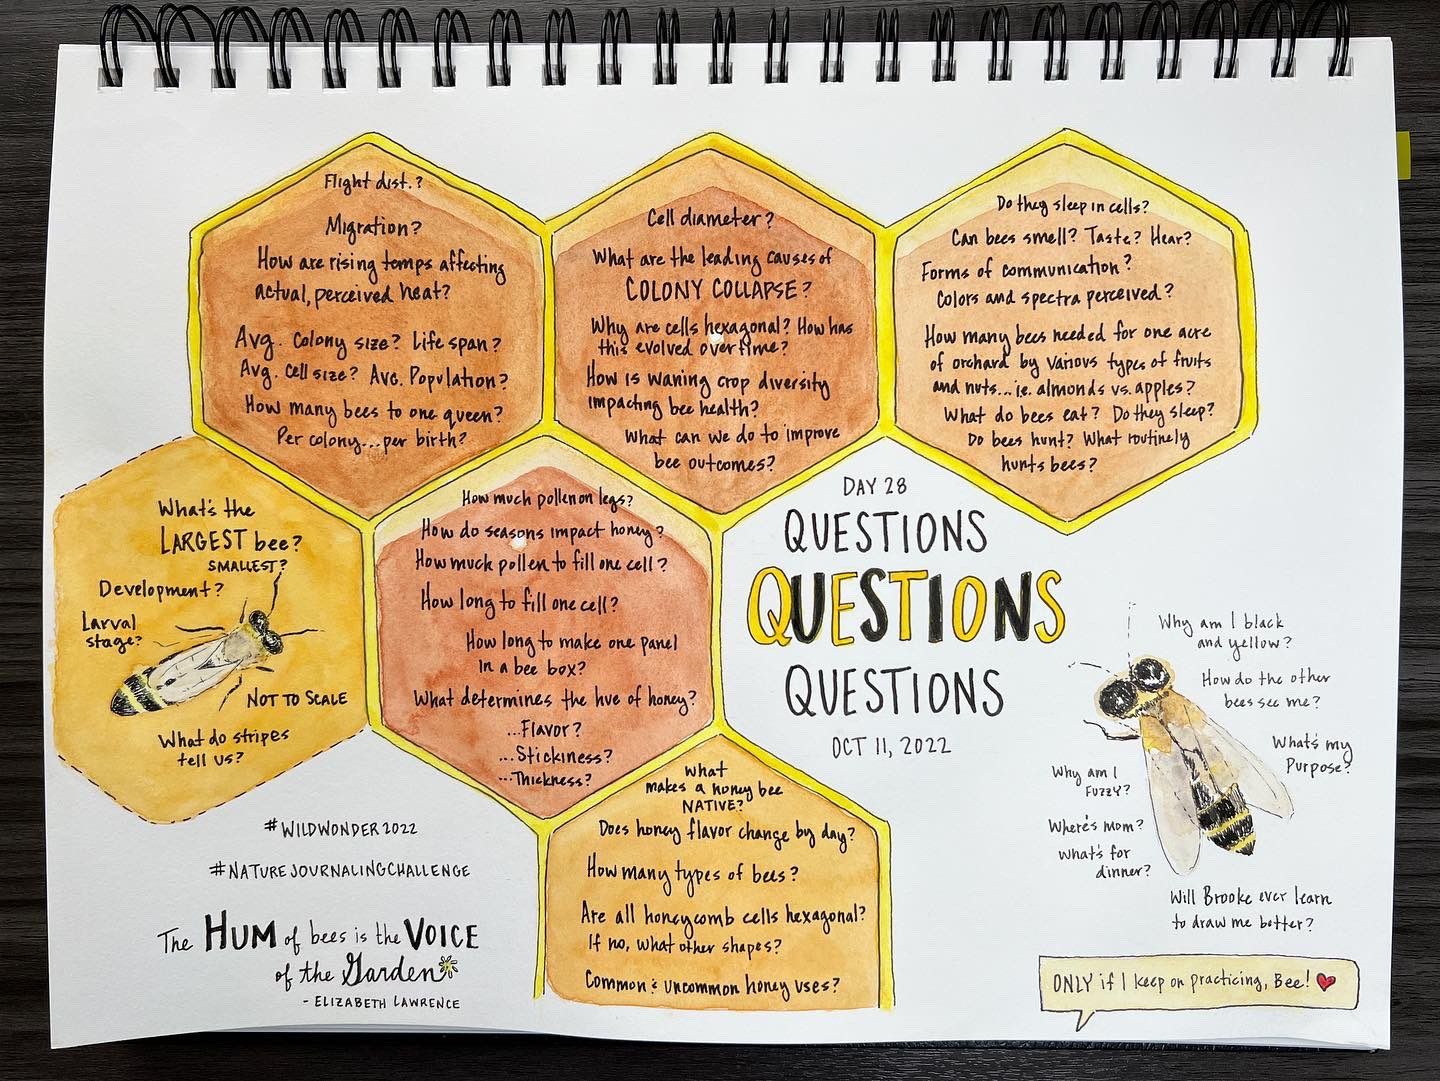 Flight dist.?
Migration?
How are rising temps affecting
actual, perceived heat?
Avg. Colony size? Life span?
Avg. Cell size? Avg. Population?
How many bees to one queen?
Per colony...per birth?
Cell diameter?
What are the leading causes of
COLONY COLLAPSE?
Why are cells hexagonal? How has
this evolved over time?
How is waning crop diversity
impacting bee health?
What can we do to improve
bee outcomes?
Do they sleep in cells?
Can bees smell? Taste? Hear?
Forms of communication?
Colors and spectra perceived?
How many bees needed for one acre
of orchard by various types of fruits
and nuts... ie. almonds vs. apples?
What do bees eat? Do they sleep?
Do bees hunt? What routinely
hunts bees?
What's the
LARGEST bee?
SMALLEST?
Development?
Larval
stage?
NOT TO SCALE
What do stripes
tell us?
How much pollen on legs?
How do seasons impact honey?
How much pollen to fill one cell?
How long to fill one cell?
How long to make one panel
in a bee box?
What determines the hue of honey?
...Flavor?
...Stickiness?
...Thickness?
DAY 28
QUESTIONS
QUESTIONS
QUESTIONS
OCT 11, 2022
What
makes a honey bee
NATIVE?
Does honey flavor change by day?
How many types of bees?
Are all honeycomb cells hexagonal?
If no, what other shapes?
Common & uncommon honey uses?
Why am I black
and yellow?
How do the other
bees see me?
What's my
Purpose?
Why am I
FUZZY?
Where's mom?
What's for
dinner?
Will Brooke ever learn
to draw me better?
ONLY if I keep on practicing, Bee!
#WILDWONDER2022
#NATUREJOURNALINGCHALLENGE
The HUM of bees is the VOICE
of the Garden
- ELIZABETH LAWRENCE